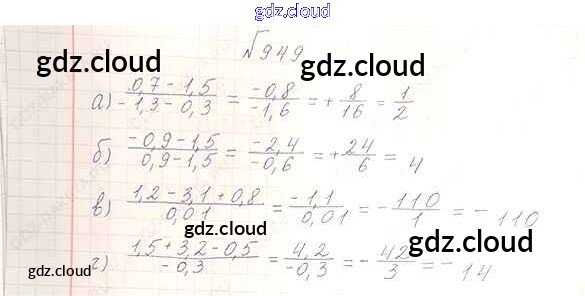 gdz.cloud
№949
gdz.cloud gdz.cloud
а) 0,7 - 1,5 / -1,3 - 0,3 = -0,8 / -1,6 = + 8/16 = 1/2
б) -0,9 - 1,5 / 0,9 - 1,5 = -2,4 / -0,6 = + 24/6 = 4
в) 1,2 - 3,1 + 0,8 / 0,01 = -1,1 / 0,01 = - 110/1 = - 110
gdz.cloud gdz.cloud
г) 1,5 + 3,2 - 0,5 / -0,3 = 4,2 / -0,3 = - 42/3 = - 14
gdz.cloud